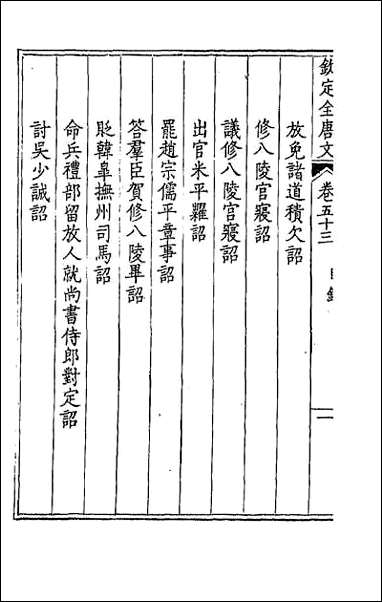 欽定全唐文 卷五十三 目錄 二
放免諸道積欠詔
修八陵官寢詔
議修八陵官寢詔
出官米平糶詔
罷趙宗儒平章事詔
答羣臣賀修八陵畢詔
貶韓皐撫州司馬詔
命兵禮部留放人就尚書侍郎對定詔
討吳少誠詔